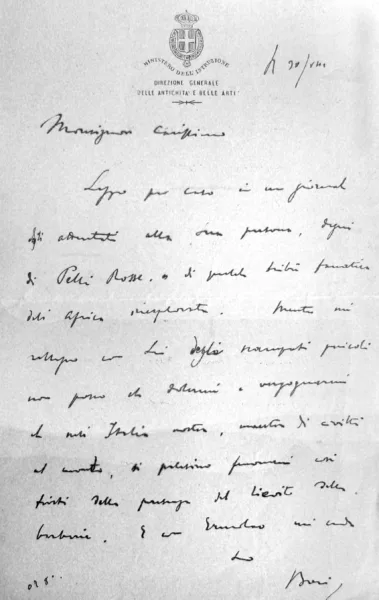 MINISTERO DELL'ISTRUZIONE
DIREZIONE GENERALE
DELLE ANTICHITÀ E BELLE ARTI
Monsignor Carissimo
Leggo per caso in un giornale
gli attentati alla Sua persona, degni
di Pelli Rosse, o di qualche tribù fanatica
dell' Africa inesplorata. Mentre mi
rallegro con Lei degli scampati pericoli
non posso che dolermi e vergognarmi
che nell' Italia nostra, maestra di civiltà
al mondo, si palesino fenomeni così
tristi della presenza del lievito della
barbarie. E con mi creda
Suo